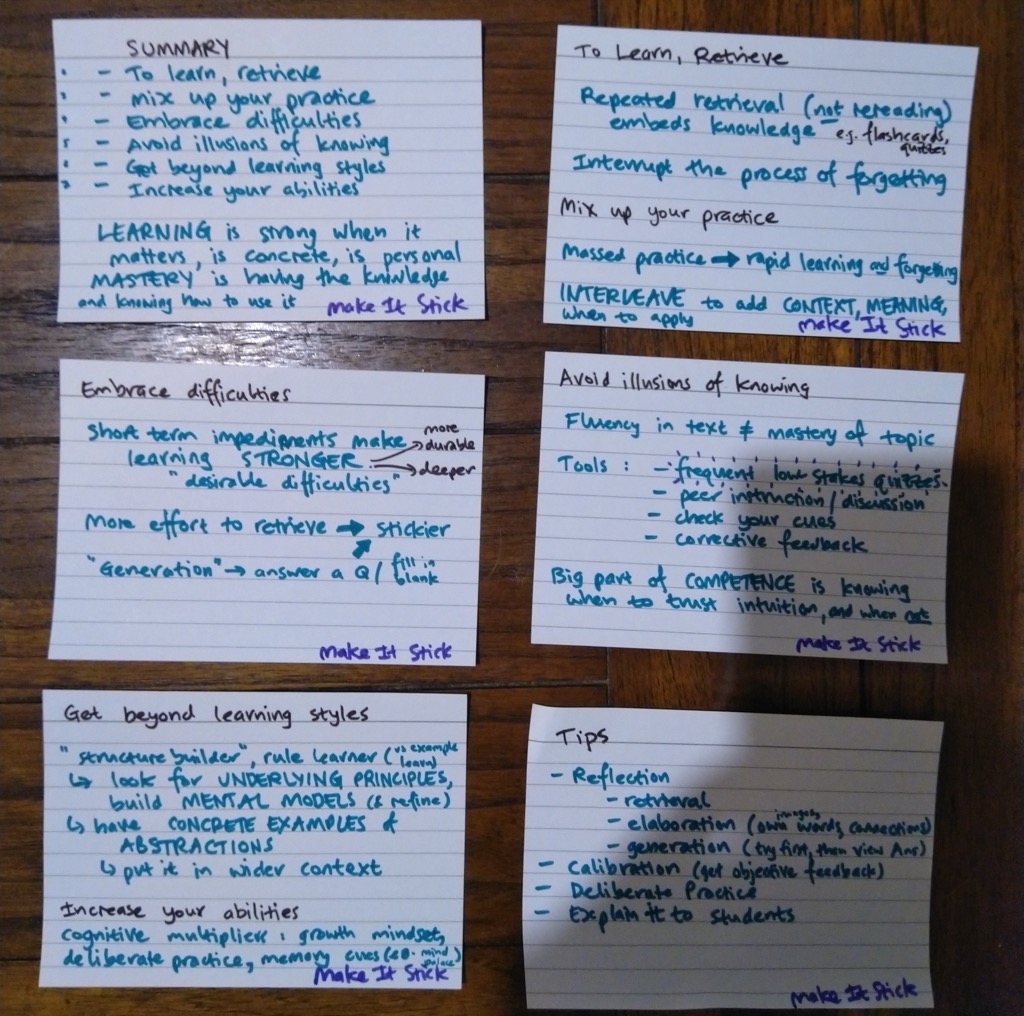 SUMMARY
- To learn, retrieve
- mix up your practice
- Embrace difficulties
- Avoid illusions of knowing
- Get beyond learning styles
- Increase your abilities
LEARNING is strong when it
matters, is concrete, is personal
MASTERY is having the knowledge
and knowing how to use it
Make It Stick
To Learn, Retrieve
Repeated retrieval (not rereading)
embeds knowledge e.g. flashcards,
quizzes
Interrupt the process of forgetting
Mix up your practice
Massed practice → rapid learning and forgetting
INTERLEAVE to add CONTEXT, MEANING,
when to apply
Make It Stick
Embrace difficulties
Short term impediments make
learning STRONGER → more durable
→ deeper
"desirable difficulties"
More effort to retrieve → stickier
"Generation" → answer a Q / fill in
blank
Make It Stick
Avoid illusions of knowing
Fluency in text ≠ mastery of topic
Tools : - frequent low stakes quizzes
- peer instruction / discussion
- check your cues
- corrective feedback
Big part of COMPETENCE is knowing
when to trust intuition, and when not
Make It Stick
Get beyond learning styles
"structure builder", rule learner (vs example
learn)
↳ look for UNDERLYING PRINCIPLES,
build MENTAL MODELS (& refine)
↳ have CONCRETE EXAMPLES &
ABSTRACTIONS
↳ put it in wider context
Increase your abilities
cognitive multipliers : growth mindset,
deliberate practice, memory cues (eg. mind
palace)
Make It Stick
Tips
- Reflection
- retrieval
- elaboration (own words, images, connections)
- generation (try first, then view Ans)
- Calibration (get objective feedback)
- Deliberate Practice
- Explain it to students
Make It Stick